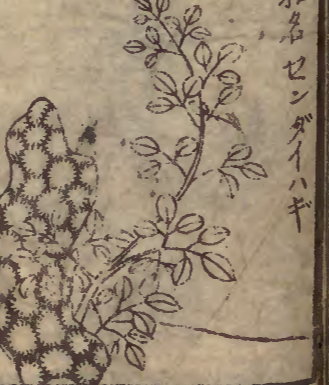 和名センダイハギ